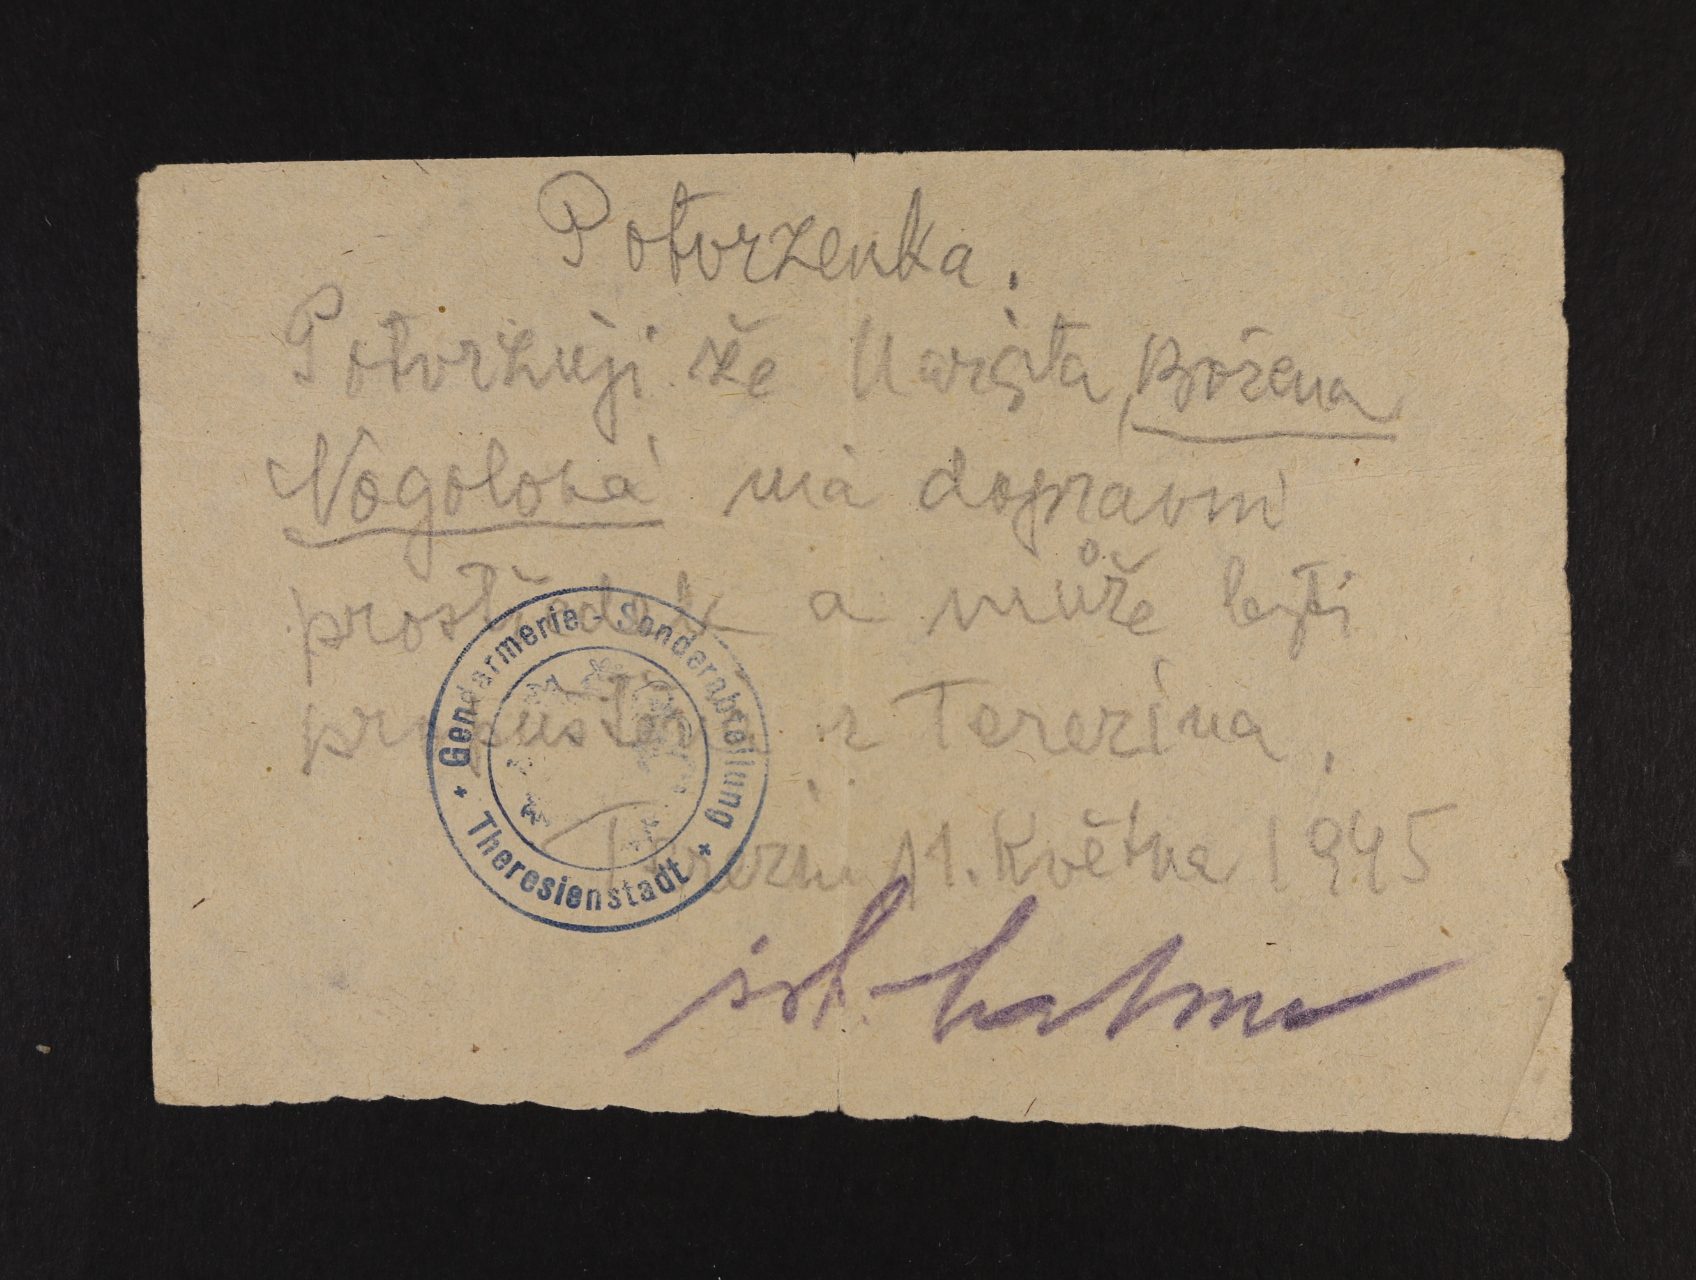 Potvrzenka.
Potvrzuji že Maršta, Božena
Nogolová má dopravní
prostředek a může býti
propuštěna z Terezína.
Terezín 11. Května 1945
Gendarmerie-Sonderabteilung
+ Theresienstadt +